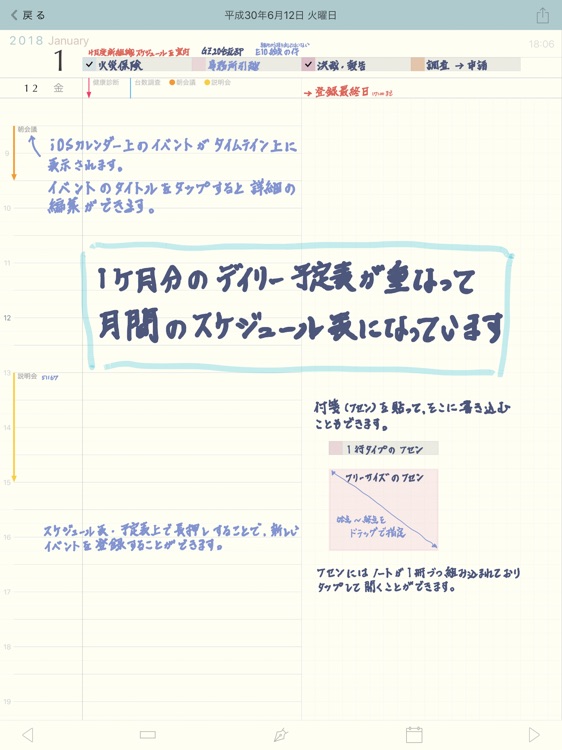 戻る
平成30年6月12日 火曜日
2018 January
18:06
1
12 金
火災保険
事務所引越
決裁・報告
調査 → 申請
健康診断
台数調査
朝会議
説明会
→ 登録最終日
朝会議
iOSカレンダー上のイベントが タイムライン上に
表示されます。
イベントのタイトルをタップすると 詳細の
編集ができます。
9
10
11
12
13
14
15
16
17
18
19
1ヶ月分の デイリー 予定表が重なって
月間のスケジュール表になっています
説明会
付箋(フセン)を貼って、そこに書き込む
こともできます。
1行タイプの フセン
フリーサイズの フセン
始点〜終点を
ドラッグで指定
スケジュール表・予定表上で長押しすることで、新しい
イベントを登録することができます。
フセンには ノートが1冊づつ組み込まれており
タップして 開くことができます。